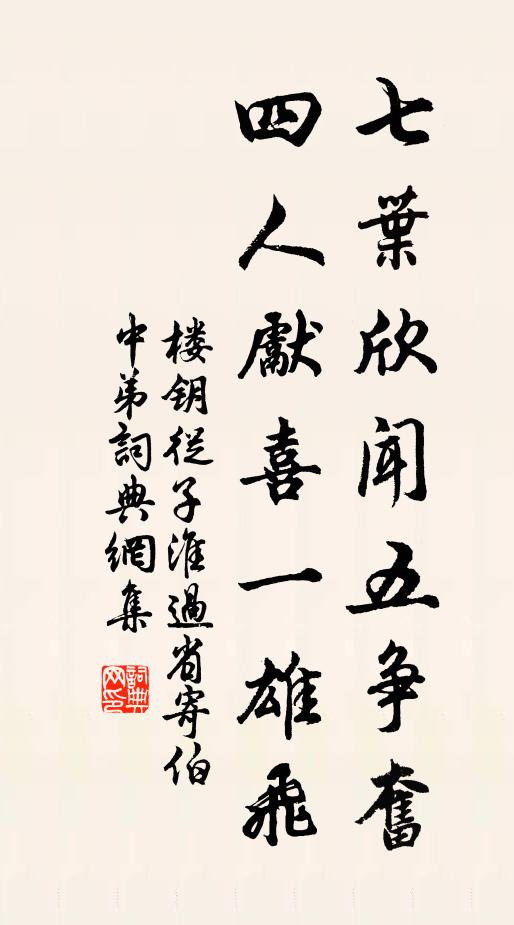 七葉欣闻五争奮
四人獻喜一雄飛
楼钥從子淮過省寄伯
中弟詞典網集
詞典
网印